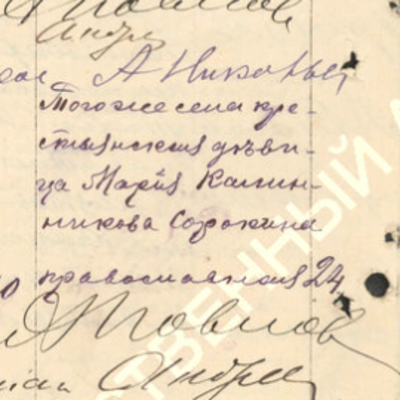 Андре
А Николаев
Того же села кре-
стьянская дѣви-
ца Мария Калин-
никова Сорокина
православная 24
Павлов
Андре
СТВЕННЫЙ А